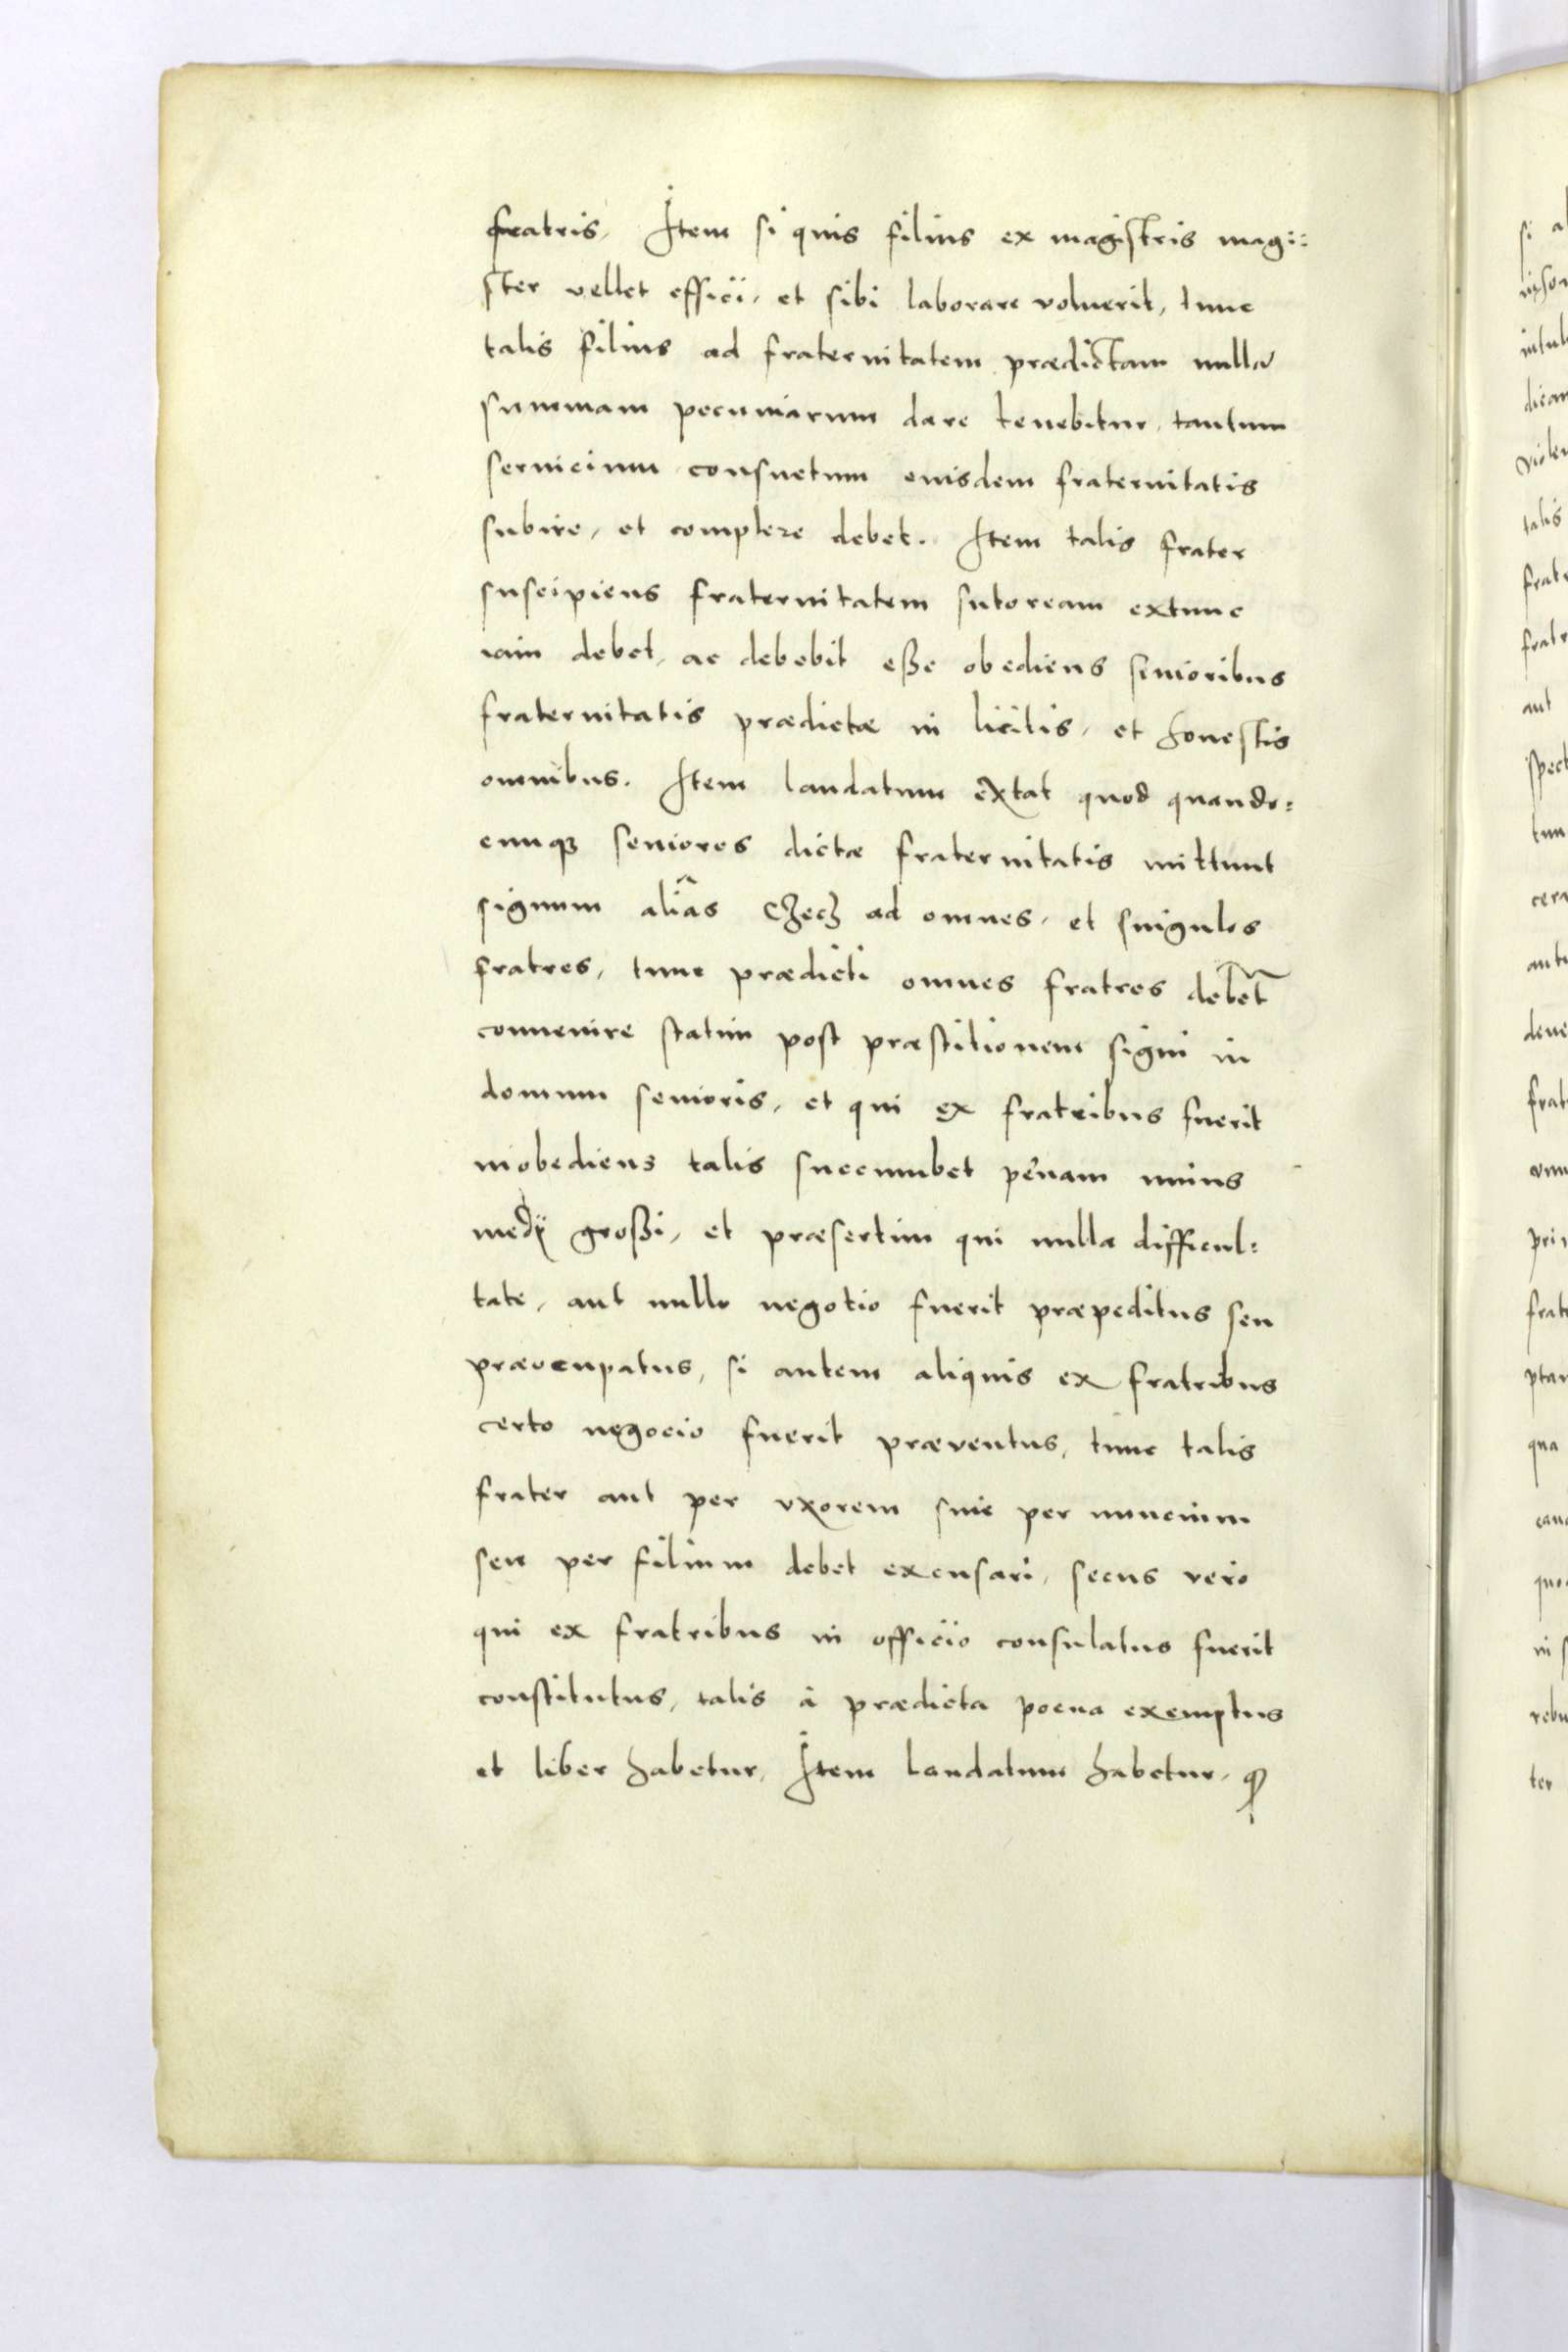 fratris, Item si quis filius ex magistris magi:
ster vellet effici, et sibi laborare voluerit, tunc
talis filius ad fraternitatem prædictam nullã
summam pecuniarum dare tenebitur, tantum
seruicium consuetum euisdem fraternitatis
subire, et complere debet. Item talis frater
suscipiens fraternitatem sutoream extunc
iam debet, ac debebit eße obediens senioribus
fraternitatis prædictæ in licitis, et honestis
omnibus. Item laudatum extat quod quando:
cunqꝫ seniores dictæ fraternitatis mittunt
signum aliâs Czech ad omnes, et singulos
fratres, tunc prædicti omnes fratres debẽt
conuenire statim post præstitionem signi in
domum senioris, et qui ex fratribus fuerit
inobediens talis succumbet penam unius
medÿ großi, et præsertim qui nulla difficul:
tate, aut nullo negotio fuerit præpeditus seu
præocupatus, si autem aliquis ex fratribus
certo negocio fuerit præventus, tunc talis
frater aut per vxorem siue per nuncium
seu per filium debet excusari, secus vero
qui ex fratribus in officio consulatus fuerit
constitutus, talis à prædicta poena exemptus
et liber habetur, Item laudatum habetur, ꝙ
si
talis
aut
tun
dene
frat
qua
quo
ter